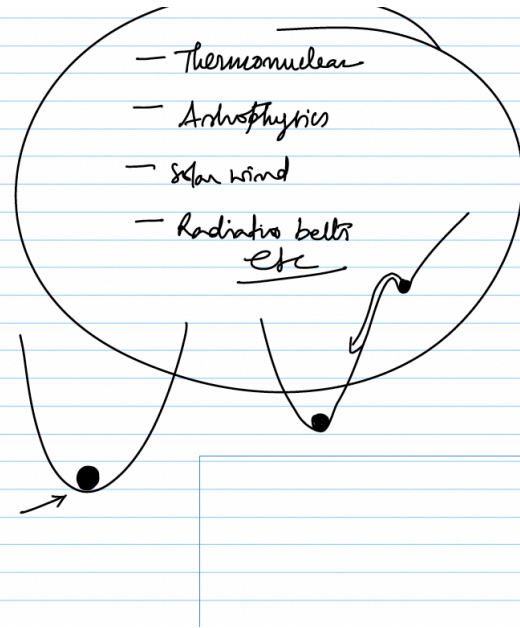 — Thermonuclear
— Astrophysics
— Solar wind
— Radiation belts
etc